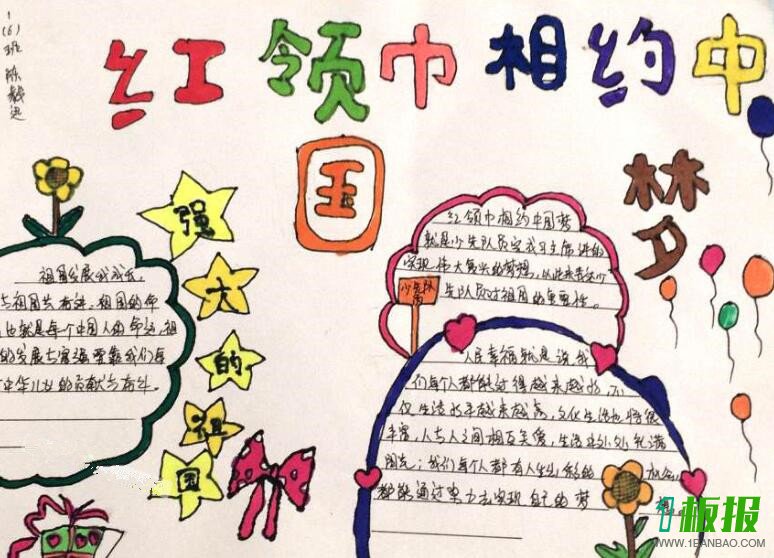 1(6)班 陈毅迅
红领巾相约中
国
梦
强
大
的
祖
国
红领巾相约中国梦
就是少先队员完成习主席讲的
实现伟大复兴的梦想,
生队员对祖国的重要性。
少先队
祖国发展我成长,
与祖国共奋进,祖国的命
也就是每个中国人的命运,祖
的发展
中华儿女的贡献与奋斗。
人民幸福就是说,我
们每个人都能过得越来越好,不
仅生活水平越来越高,文化生活也将很
丰富,人与人之间相互关爱,生活处处充满
阳光;我们每个人都有人生出彩的机会,
都能通过努力去实现自己的梦
想。
板报
WWW.1BANBAO.COM